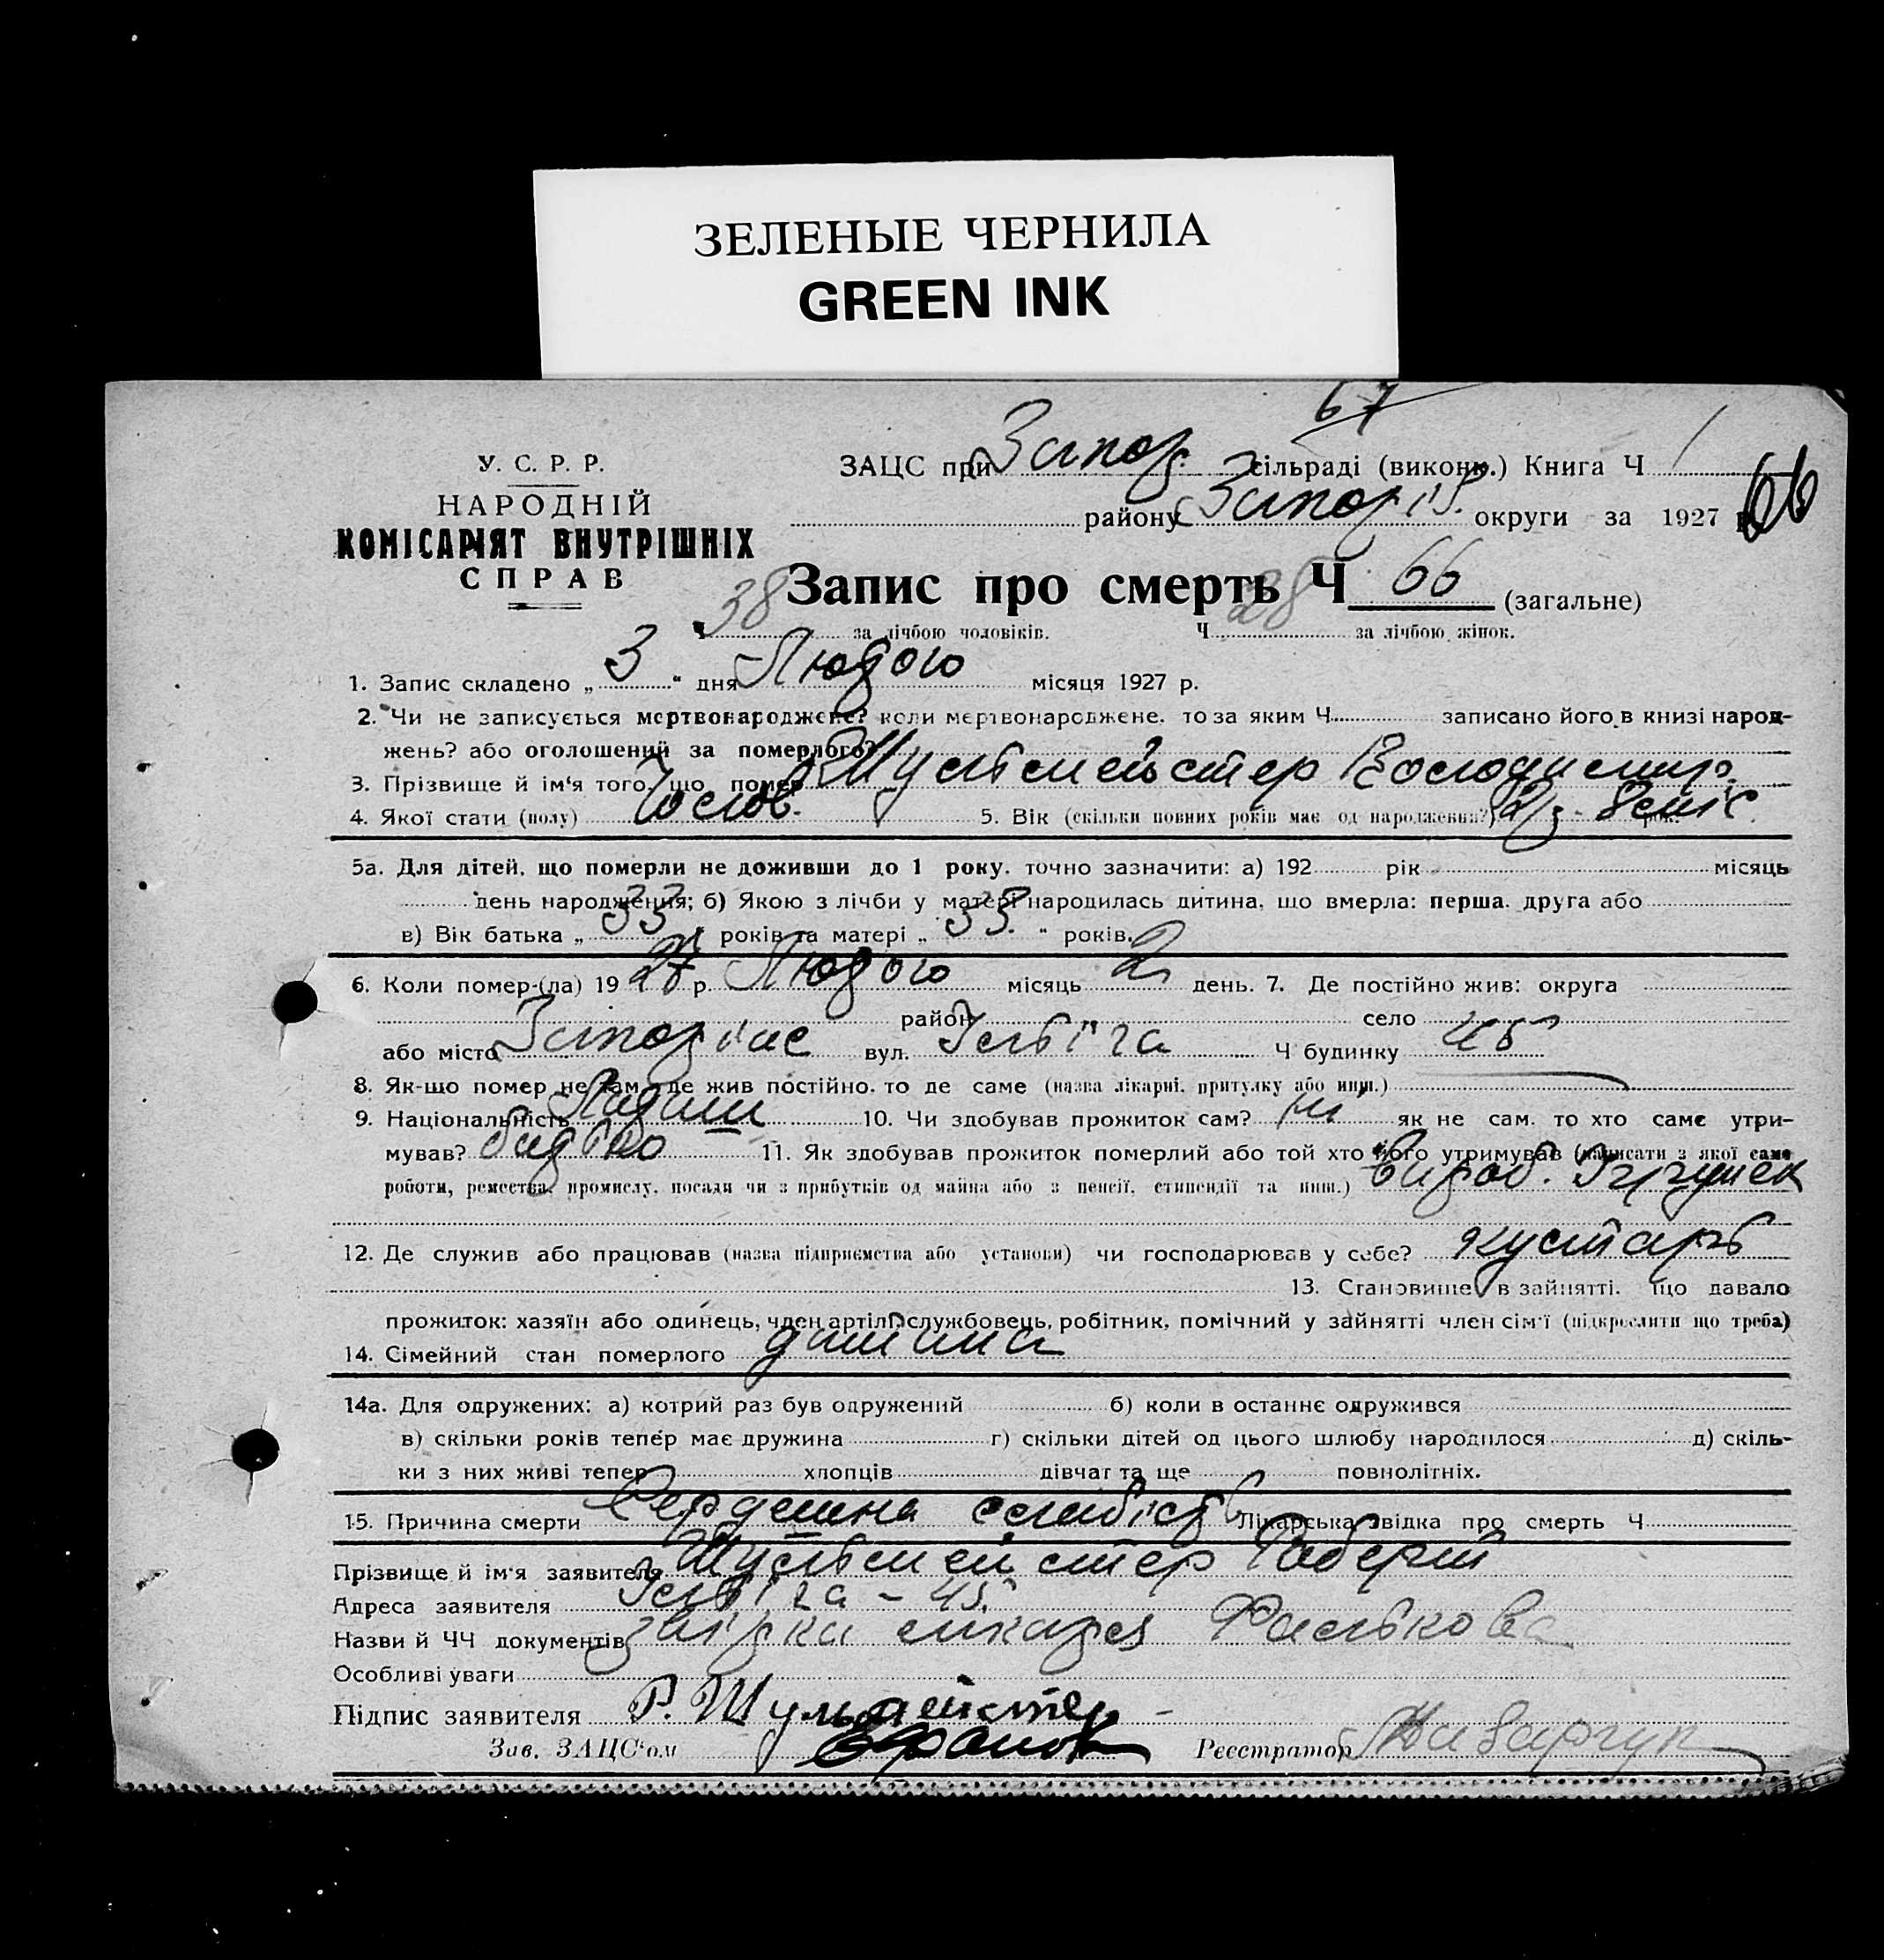 ЗЕЛЕНЫЕ ЧЕРНИЛА
GREEN INK
67
У. С. Р. Р.
НАРОДНІЙ
КОМІСАРІЯТ ВНУТРІШНІХ
СПРАВ
ЗАЦС при Запор. сільраді (виконк.) Книга Ч 1
району Запоріз. округи за 1927 р. 66
Запис про смерть Ч 66 (загальне)
38 за лічбою чоловіків. Ч 28 за лічбою жінок.
1. Запис складено „ 3 “ дня Лютого місяця 1927 р.
2. Чи не записується мертвонароджене? коли мертвонароджене, то за яким Ч. записано його в книзі народ-
жень? або оголошений за померлого?
3. Прізвище й ім‘я того, що помер Шульмейстер Володимир
4. Якої стати (полу) Чолов. 5. Вік (скільки повних років має од народження?) рок.
5а. Для дітей, що померли не доживши до 1 року, точно зазначити: а) 192 рік місяць
день народження; б) Якою з лічби у матері народилась дитина, що вмерла: перша, друга або
в) Вік батька „ 33 “ років та матері „ 33. “ років.
6. Коли помер-(ла) 19 27 р. Лютого місяць 2 день. 7. Де постійно жив: округа
район село
або місто Запоріжє вул. Ілліча Ч будинку 45
8. Як-що помер не там, де жив постійно, то де саме (назва лікарні, притулку або инш.)
9. Національність 10. Чи здобував прожиток сам? ні як не сам, то хто саме утри-
мував? батько 11. Як здобував прожиток померлий або той хто його утримував (написати з якої саме
роботи, ремества, промислу, посади чи з прибутків од майна або з пенсії, стипендії та инш.) вироб. Ігрушек
12. Де служив або працював (назва підприємства або установи) чи господарював у себе? кустарь
13. Становище в зайнятті, що давало
прожиток: хазяїн або одинець, член артілі, службовець, робітник, помічний у зайнятті член сім‘ї (підкреслити що треба)
14. Сімейний стан померлого дитина
14а. Для одружених: а) котрий раз був одружений б) коли в останнє одружився
в) скільки років тепер має дружина г) скільки дітей од цього шлюбу народилося д) скіль-
ки з них живі тепер хлопців дівчат та ще повнолітніх.
15. Причина смерти Сердешна слабість Лікарська звідка про смерть Ч
Прізвище й ім‘я заявителя Шульмейстер Роберт
Адреса заявителя Ілліча – 45
Назви й ЧЧ документів лікаря Фалькова
Особливі уваги
Підпис заявителя Р. Шульмейстер
Зав. ЗАЦС‘ом Реєстратор